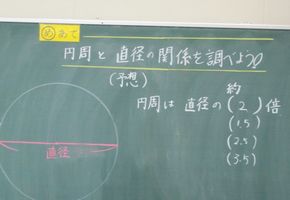 め あて
円周と直径の関係を調べよう
(予想)
約
円周は 直径の (2) 倍
(1.5)
(2.5)
(3.5)
直径